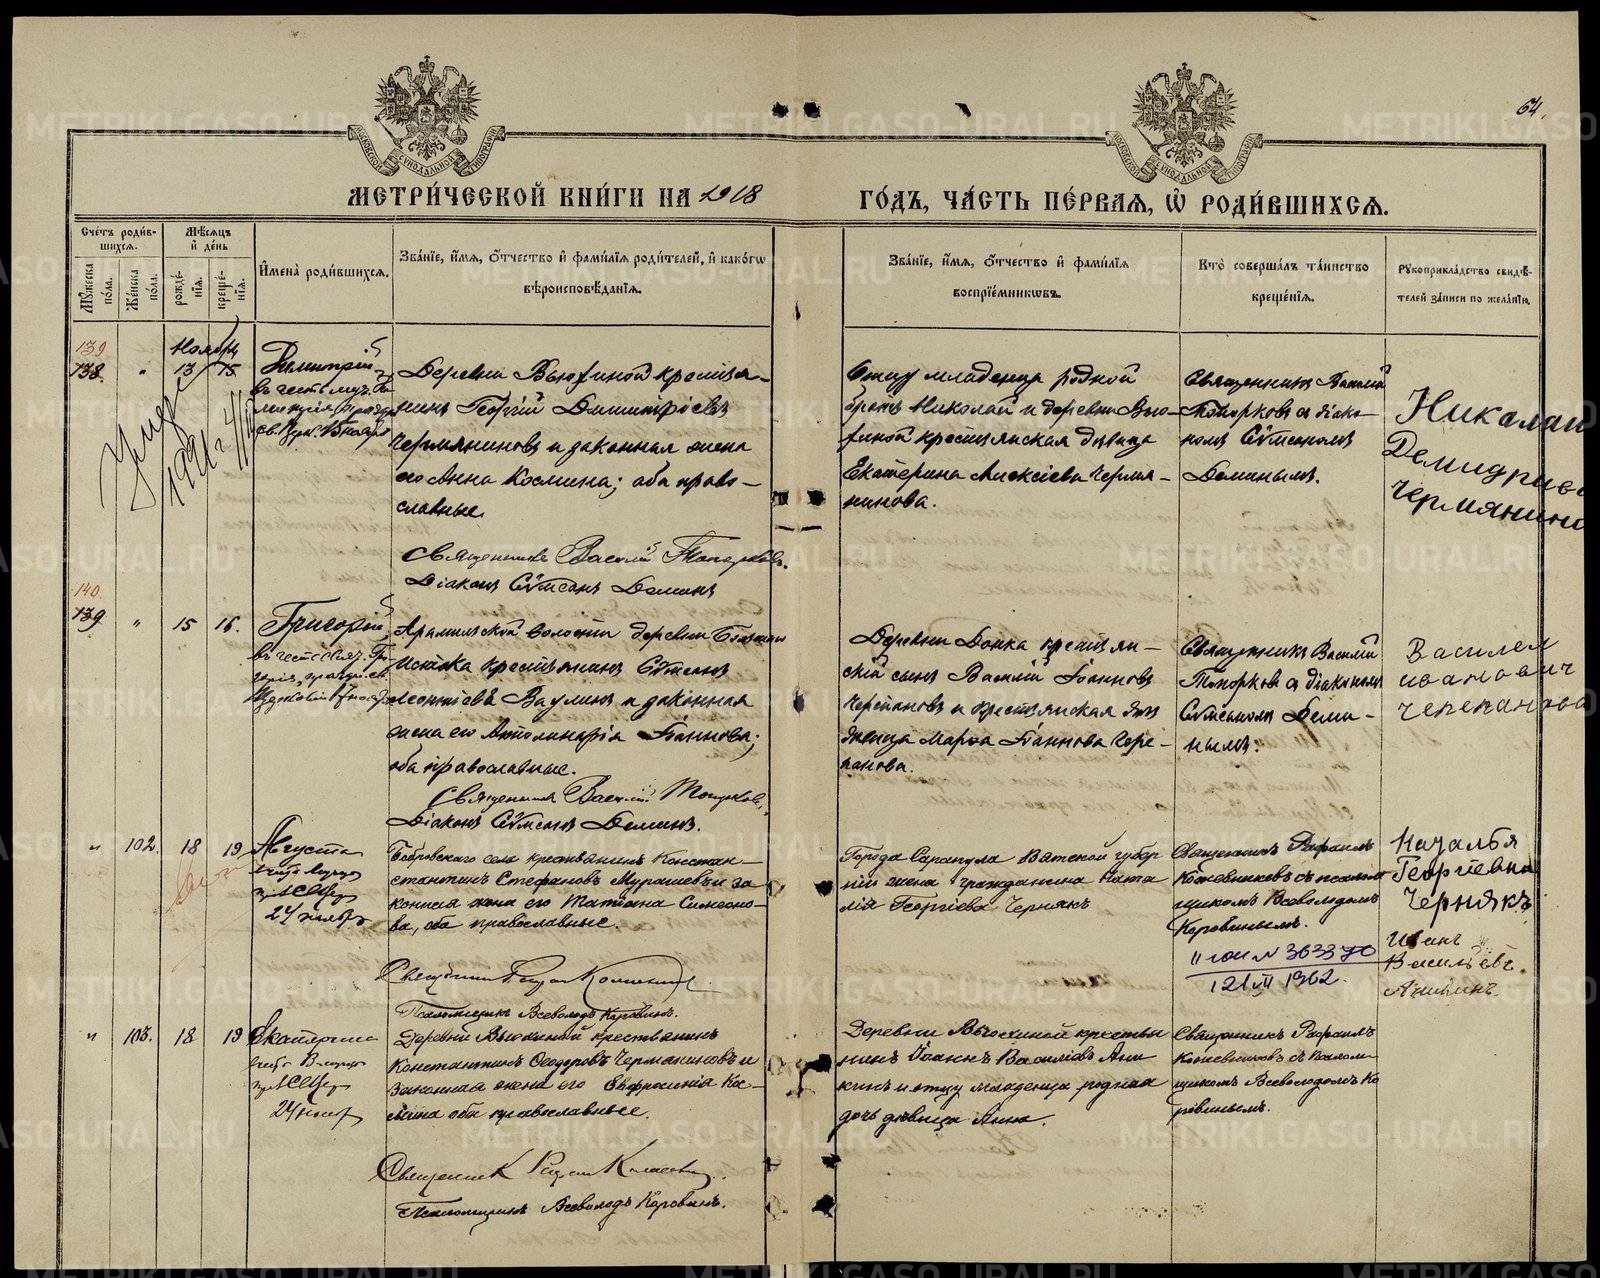 64.
МЕТРИ́ЧЕСКОЙ КНИ́ГИ НА 1918
ГО́ДЪ, ЧА́СТЬ ПЕ́РВАЯ, Ѿ РОДИ́ВШИХСЯ.
Сче́тъ роди́в-
шихся.
Му́жеска
по́ла.
Же́нска
по́ла.
Мѣ́сяцъ
и҆ де́нь
рожде́-
нїя.
креще́-
нїя.
И҆мена̀ роди́вшихся.
Зва́нїе, и҆́мя, ѻ҆́тчество и҆ фами́лїя роди́телей, и҆ како́гѡ
вѣроисповѣ́данїя.
Зва́нїе, и҆́мя, ѻ҆́тчество и҆ фами́лїя
воспрїе́мникѡвъ.
Кто̀ соверша́лъ та́инство
креще́нїя.
Рꙋкоприкла́дство свидѣ́-
телей за́писи по жела́нїю.
Ноября
139
138. " 13 15
Димитрій
Деревни Вьюхиной крестья-
нинъ Георгій Димитріевъ
Чермяниновъ и законная жена
его Анна Космина; оба право-
славные.
Священникъ Василій Топорковъ.
Діаконъ Сѵмеонъ Деминъ
Отцу младенца родной
братъ Николай и деревни Вью-
хиной крестьянская дѣвица
Екатерина Алексіева Чермя-
нинова.
Священникъ Василій
Топорковъ съ діако-
номъ Сѵмеономъ
Деминымъ.
Николай
Чермянино
1921 г.
140.
139 " 15 16.
Григорій
Арамильской волости деревни
Истока крестьянинъ Сѵмеонъ
Леонтіевъ Ваулинъ и законная
жена его Аполинарія Іоаннова;
оба православные.
Священникъ Василій Топорковъ,
Діаконъ Сѵмеонъ Деминъ.
Деревни крестьян-
скій сынъ Василій Іоанновъ
Черепановъ и крестьянская
дѣвица Марѳа Іоаннова Чере-
панова.
Священникъ Василій
Топорковъ съ діакономъ
Сѵмеономъ Деми-
нымъ.
Василей
ивановичъ
Черепановъ
" 102. 18 19
Августа
24 ноябр
Бобровскаго села крестьянинъ Констан-
стантинъ Стефановъ Мурашевъ и за
конная жена его Татіана Симеоно-
ва, оба православные.
Псаломщикъ Всеволодъ Коровинъ.
Города Сарапула Вятской губер
ніи жена гражданина Ната
лія Георгіева Чернякъ
Священникъ Рафаилъ
Кожевниковъ съ псалом
щикомъ Всеволодомъ
Коровинымъ.
II-ЮИ N 363370
12/VI 1962.
Наталья
Георгіевна
Чернякъ
" 103. 18 19
Екатерина
24 ноябр
Деревни Вьюхиной крестьянинъ
Константинъ Ѳеодоровъ Чермяниновъ и
законная жена его Евфросинія Кос-
мина оба православные.
Псаломщикъ Всеволодъ Коровинъ.
Деревни Вьюхиной крестья
нинъ Іоаннъ Василіевъ Ани
кинъ и отцу младенца родная
дочь дѣвица Анна.
Священникъ Рафаилъ
Кожевниковъ съ Псалом-
щикомъ Всеволодомъ Ко
ровинымъ.
Иванъ
Васильевъ
Аникинъ.
METRIKI.GASO-URAL.RU